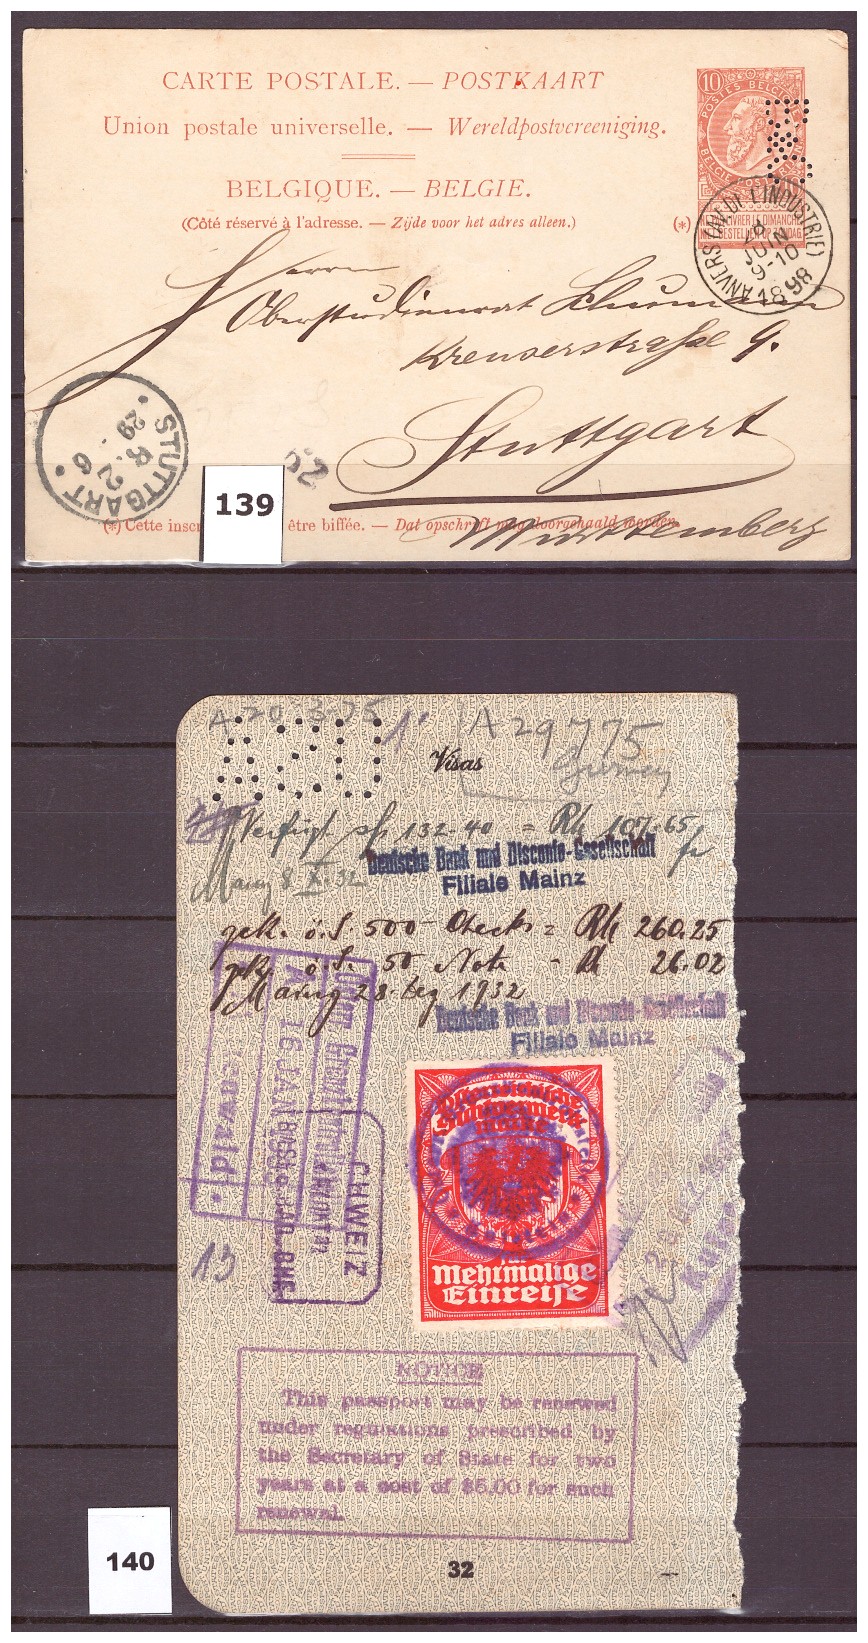 CARTE POSTALE. — POSTKAART
Union postale universelle. — Wereldpostvereeniging.
BELGIQUE. — BELGIE.
(Côté réservé à l'adresse. — Zijde voor het adres alleen.)
(*)
10
POSTES BELGIQUE
NE PAS LIVRER LE DIMANCHE
NIET BESTELLEN OP ZONDAG
ANVERS (AV. DE L'INDUSTRIE)
28
JUIN
9-10
1898
Herrn
Oberstudienrat Schumann
Kreuserstraße 9.
Stuttgart
Württemberg
STUTTGART
29 6
52
139
(*) Cette inscr être biffée. — Dat opschrift mag doorgehaald worden.
A 29775
Visas
USA
Verfügt sfr 132.40 =
Deutsche Bank und Disconto-Gesellschaft
Filiale Mainz
Mainz 8 X. 32
gek. ö.S. 500 Checks = RM 260.25
gek. ö.S. 50 Note - 26.02
Mainz 28. Dez 1932
Deutsche Bank und Disconto-Gesellschaft
Filiale Mainz
16 JAN
SCHWEIZ
13
für
Mehrmalige
Einreise
NOTICE
This passport may be renewed
under regulations prescribed by
the Secretary of State for two
years at a cost of $5.00 for such
renewal.
32
140